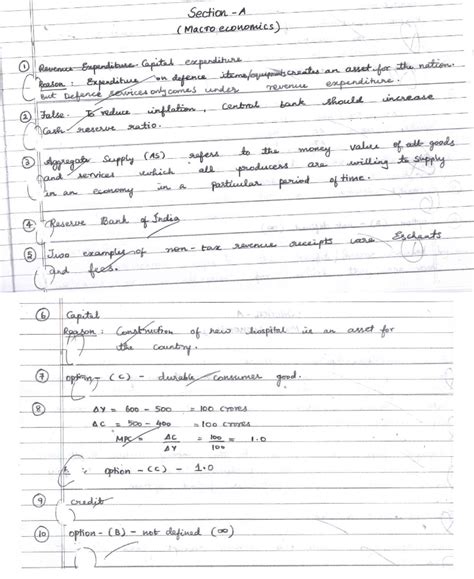 Section - A
(Macro economics)
① Revenue Expenditure Capital expenditure
Reason : Expenditure on defence items/ creates an asset for the nation.
but Defence services only comes under revenue expenditure.
② False. To reduce inflation, Central bank should increase
Cash reserve ratio.
③ Aggregate Supply (AS) refers to the money value of all goods
and services which all producers are willing to supply
in an economy in a particular period of time.
④ Reserve Bank of India
⑤ Two examples of non-tax revenue receipts are Escheats
and fees.
⑥ Capital
Reason : Construction of new hospital is an asset for
the country.
⑦ option - (C) - durable consumer good.
⑧ ΔY = 600 - 500 = 100 crores
ΔC = 500 - 400 = 100 crores
MPC = ΔC/ΔY = 100/100 = 1.0
∴ option - (C) - 1.0
⑨ credit
⑩ option - (B) - not defined (∞)